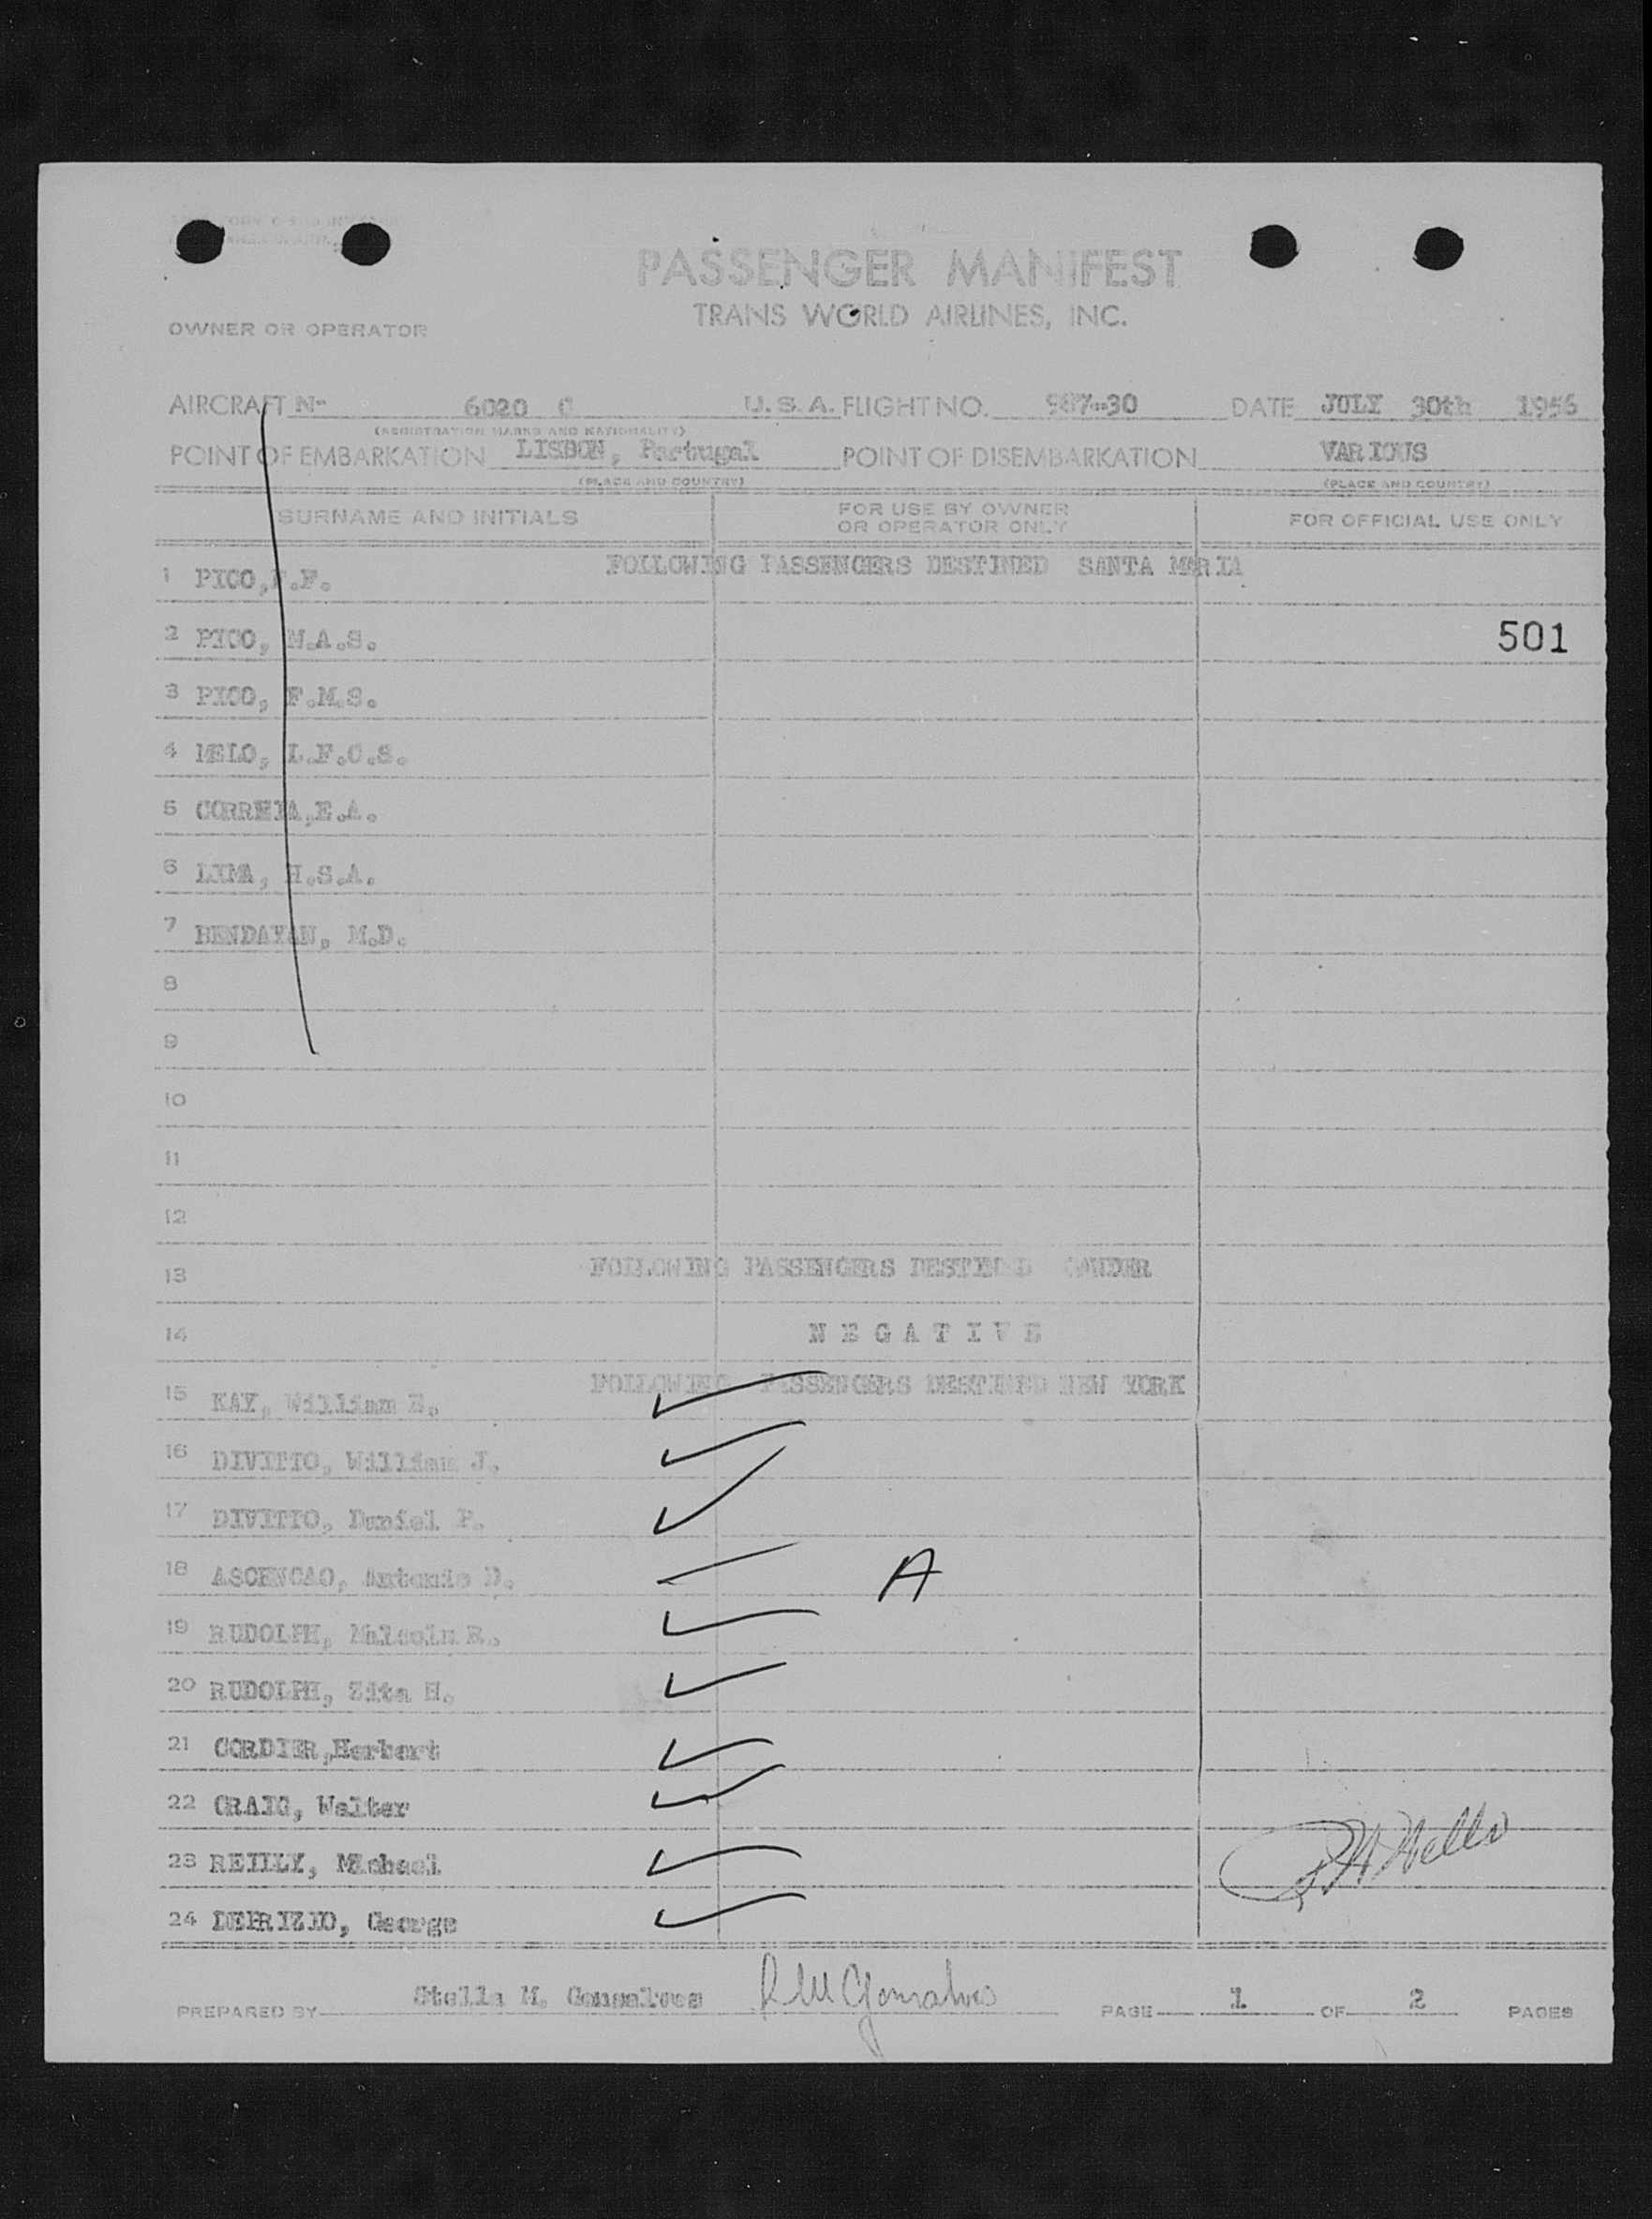 PASSENGER MANIFEST
TRANS WORLD AIRLINES, INC.
OWNER OR OPERATOR
AIRCRAFT No 6020 C U.S.A. FLIGHT NO. 987-30 DATE JULY 30th 1956
(REGISTRATION MARKS AND NATIONALITY)
POINT OF EMBARKATION LISBON, Portugal POINT OF DISEMBARKATION VARIOUS
(PLACE AND COUNTRY) (PLACE AND COUNTRY)
SURNAME AND INITIALS FOR USE BY OWNER OR OPERATOR ONLY FOR OFFICIAL USE ONLY
FOLLOWING PASSENGERS DESTINED SANTA MARIA
1 PICO, .F.
2 PICO, M.A.S. 501
3 PICO, F.M.S.
4 MELO, L.F.C.S.
5 CORREIA,E.A.
6 LIMA, H.S.A.
7 BENDAYAN, M.D.
8
9
10
11
12
13 FOLLOWING PASSENGERS DESTINED GANDER
14 N E G A T I V E
FOLLOWING PASSENGERS DESTINED NEW YORK
15 KAY, William E.
16 DIVITTO, William J.
17 DIVITTO, Daniel P.
18 ASCENCAO, Antonio D. A
19 RUDOLPH, Malcolm R.
20 RUDOLPH, Zita H.
21 CORDIER,Herbert
22 CRAIG, Walter
23 REILLY, Michael
24 DEPRIZIO, George
PREPARED BY Stella M. Gonsalves PAGE 1 OF 2 PAGES